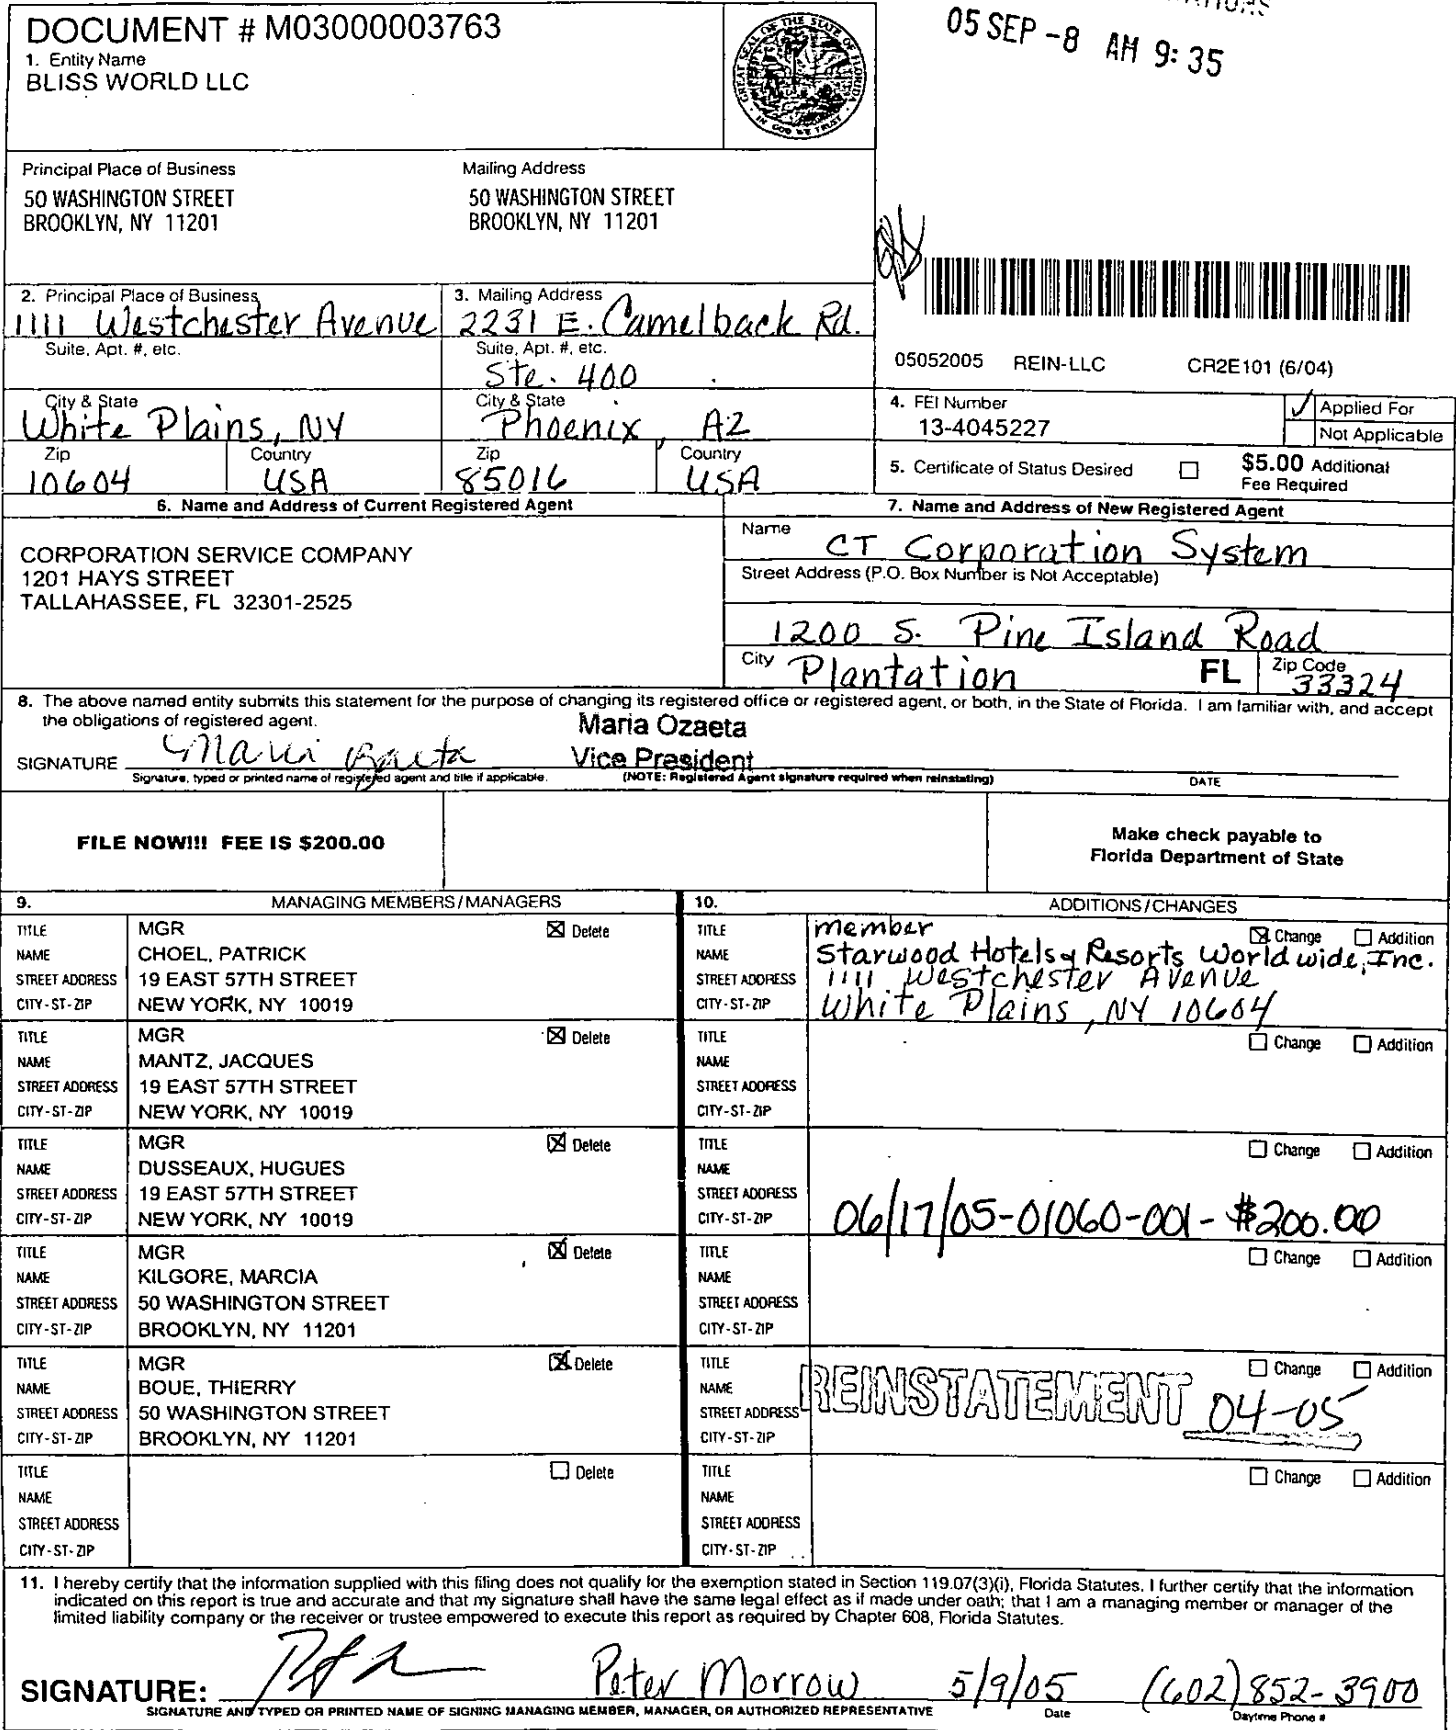 05 SEP -8 AM 9:35
DOCUMENT # M03000003763
1. Entity Name
BLISS WORLD LLC
GREAT SEAL OF THE STATE OF FLORIDA
IN GOD WE TRUST
Principal Place of Business
50 WASHINGTON STREET
BROOKLYN, NY 11201
Mailing Address
50 WASHINGTON STREET
BROOKLYN, NY 11201
2. Principal Place of Business
1111 Westchester Avenue
Suite, Apt. #, etc.
City & State
White Plains, NY
Zip
10604
Country
USA
3. Mailing Address
2231 E. Camelback Rd.
Suite, Apt. #, etc.
Ste. 400
City & State
Phoenix, AZ
Zip
85016
Country
USA
05052005 REIN-LLC CR2E101 (6/04)
4. FEI Number
13-4045227
Applied For
Not Applicable
5. Certificate of Status Desired
$5.00 Additional
Fee Required
6. Name and Address of Current Registered Agent
CORPORATION SERVICE COMPANY
1201 HAYS STREET
TALLAHASSEE, FL 32301-2525
7. Name and Address of New Registered Agent
Name
CT Corporation System
Street Address (P.O. Box Number is Not Acceptable)
1200 S. Pine Island Road
City
Plantation
FL
Zip Code
33324
8. The above named entity submits this statement for the purpose of changing its registered office or registered agent, or both, in the State of Florida. I am familiar with, and accept
the obligations of registered agent.
Maria Ozaeta
Vice President
SIGNATURE Maria Ozaeta
Signature, typed or printed name of registered agent and title if applicable.
(NOTE: Registered Agent signature required when reinstating)
DATE
FILE NOW!!! FEE IS $200.00
Make check payable to
Florida Department of State
9. MANAGING MEMBERS/MANAGERS
TITLE MGR Delete
NAME CHOEL, PATRICK
STREET ADDRESS 19 EAST 57TH STREET
CITY-ST-ZIP NEW YORK, NY 10019
TITLE MGR Delete
NAME MANTZ, JACQUES
STREET ADDRESS 19 EAST 57TH STREET
CITY-ST-ZIP NEW YORK, NY 10019
TITLE MGR Delete
NAME DUSSEAUX, HUGUES
STREET ADDRESS 19 EAST 57TH STREET
CITY-ST-ZIP NEW YORK, NY 10019
TITLE MGR Delete
NAME KILGORE, MARCIA
STREET ADDRESS 50 WASHINGTON STREET
CITY-ST-ZIP BROOKLYN, NY 11201
TITLE MGR Delete
NAME BOUE, THIERRY
STREET ADDRESS 50 WASHINGTON STREET
CITY-ST-ZIP BROOKLYN, NY 11201
TITLE Delete
NAME
STREET ADDRESS
CITY-ST-ZIP
10. ADDITIONS/CHANGES
TITLE member Change Addition
NAME Starwood Hotels & Resorts Worldwide, Inc.
STREET ADDRESS 1111 Westchester Avenue
CITY-ST-ZIP White Plains, NY 10604
TITLE Change Addition
NAME
STREET ADDRESS
CITY-ST-ZIP
TITLE Change Addition
NAME
STREET ADDRESS
CITY-ST-ZIP 06/17/05-01060-001-$200.00
TITLE Change Addition
NAME
STREET ADDRESS
CITY-ST-ZIP
TITLE Change Addition
NAME REINSTATEMENT
STREET ADDRESS 04-05
CITY-ST-ZIP
TITLE Change Addition
NAME
STREET ADDRESS
CITY-ST-ZIP
11. I hereby certify that the information supplied with this filing does not qualify for the exemption stated in Section 119.07(3)(i), Florida Statutes. I further certify that the information
indicated on this report is true and accurate and that my signature shall have the same legal effect as if made under oath; that I am a managing member or manager of the
limited liability company or the receiver or trustee empowered to execute this report as required by Chapter 608, Florida Statutes.
SIGNATURE: Peter Morrow 5/9/05 (602)852-3900
SIGNATURE AND TYPED OR PRINTED NAME OF SIGNING MANAGING MEMBER, MANAGER, OR AUTHORIZED REPRESENTATIVE Date Daytime Phone #